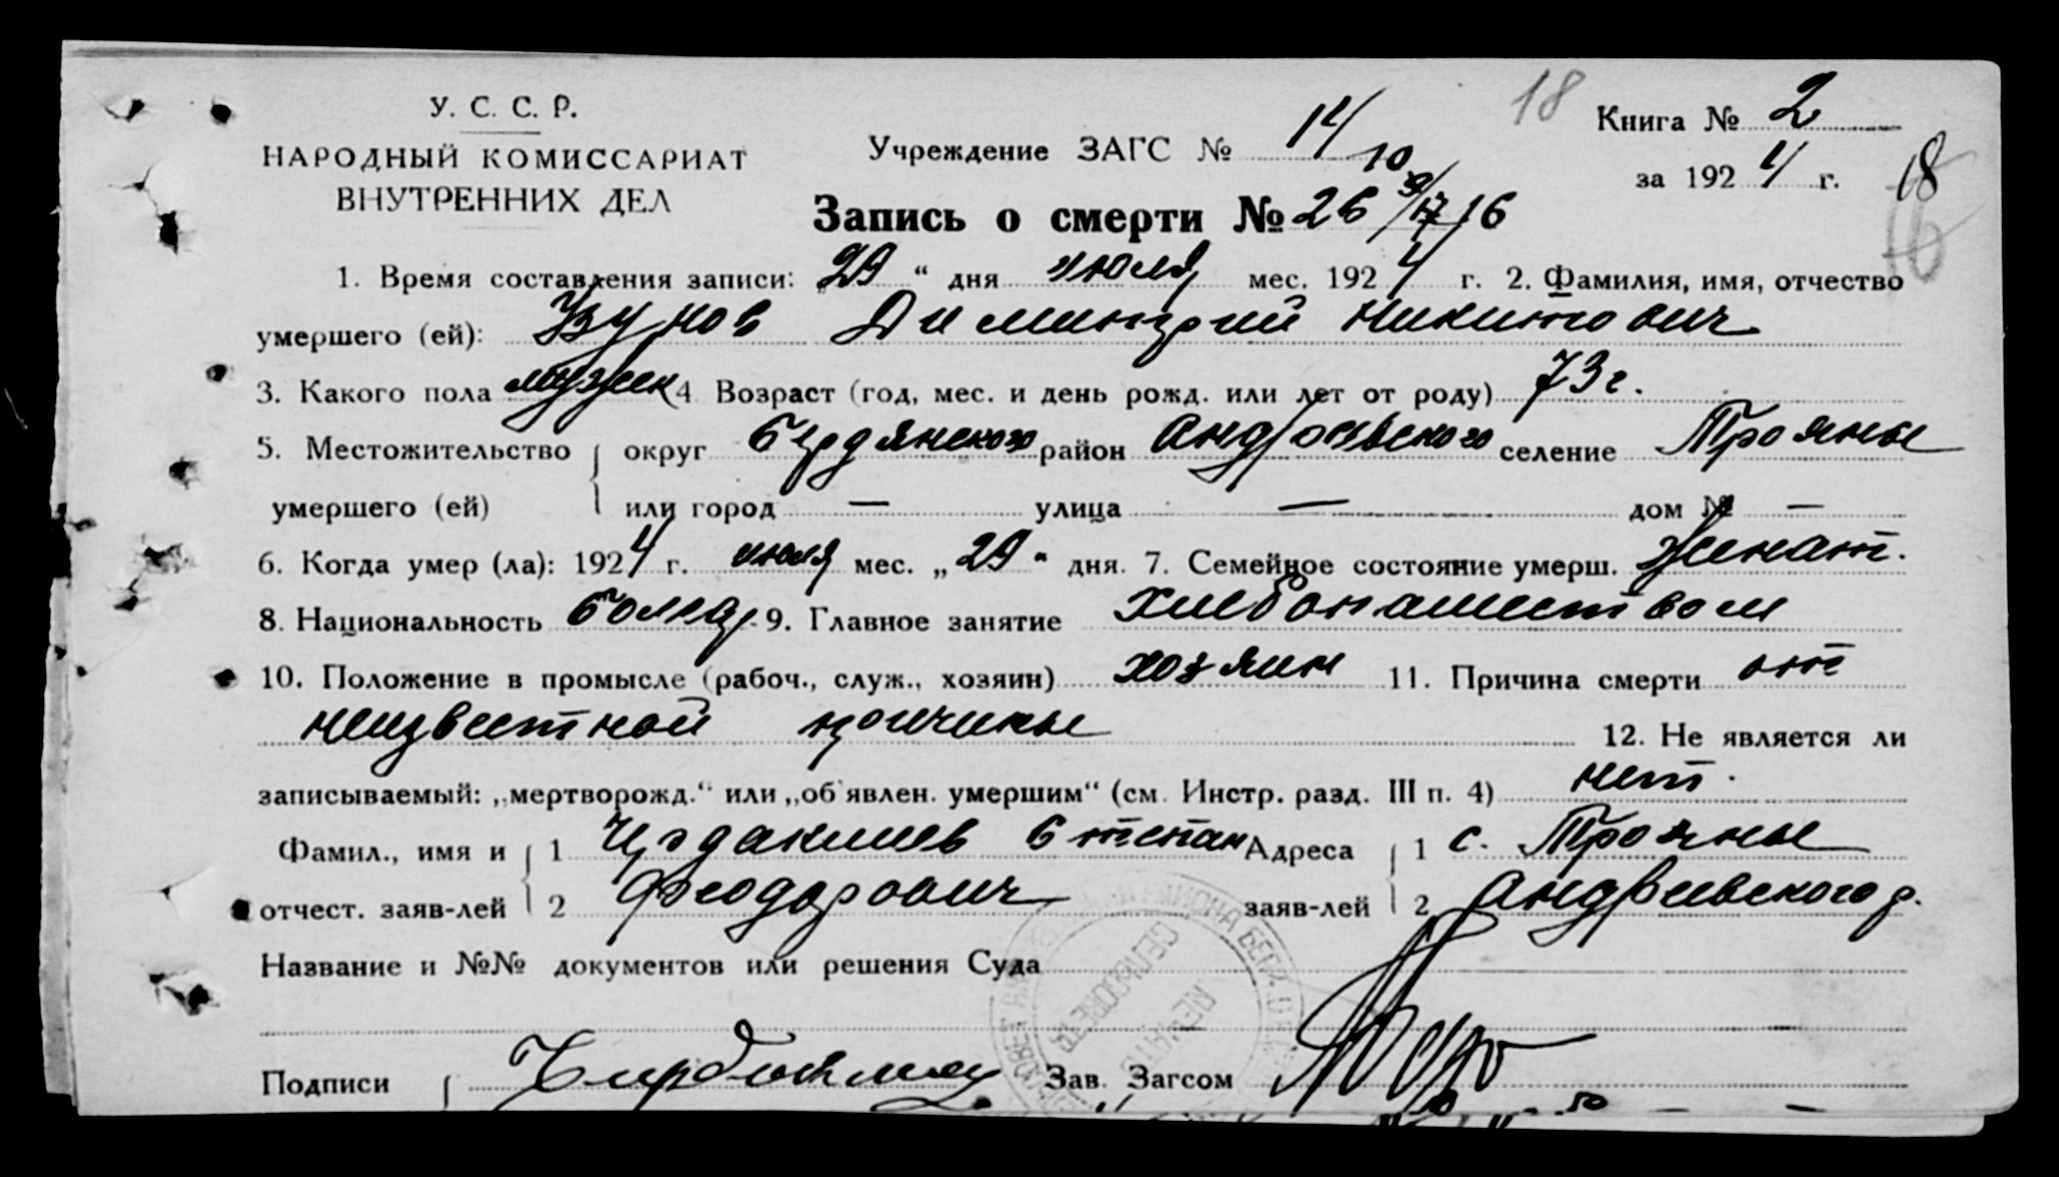 У. С. С. Р.
НАРОДНЫЙ КОМИССАРИАТ
ВНУТРЕННИХ ДЕЛ
Учреждение ЗАГС № 14/10
18
Книга № 2
за 1924 г.
18
16
Запись о смерти № 26 16
1. Время составления записи: „29“ дня июля мес. 1924 г. 2. Фамилия, имя, отчество
умершего (ей): Узунов Димитрий Никитович
3. Какого пола мужск 4. Возраст (год, мес. и день рожд. или лет от роду) 73 г.
5. Местожительство округ Бердянского район Андреевского селение Трояны
умершего (ей) или город — улица — дом № —
6. Когда умер (ла): 1924 г. июля мес. „29“ дня. 7. Семейное состояние умерш. женат.
8. Национальность болгар. 9. Главное занятие хлебопашеством
10. Положение в промысле (рабоч., служ., хозяин) хозяин 11. Причина смерти от
неизвестной причины 12. Не является ли
записываемый: „мертворожд.“ или „об'явлен. умершим“ (см. Инстр. разд. III п. 4) нет.
Фамил., имя и 1 Степан Адреса 1 с. Трояны
отчест. заяв-лей 2 Феодорович заяв-лей 2 Андреевского р.
Название и №№ документов или решения Суда
Подписи Зав. Загсом